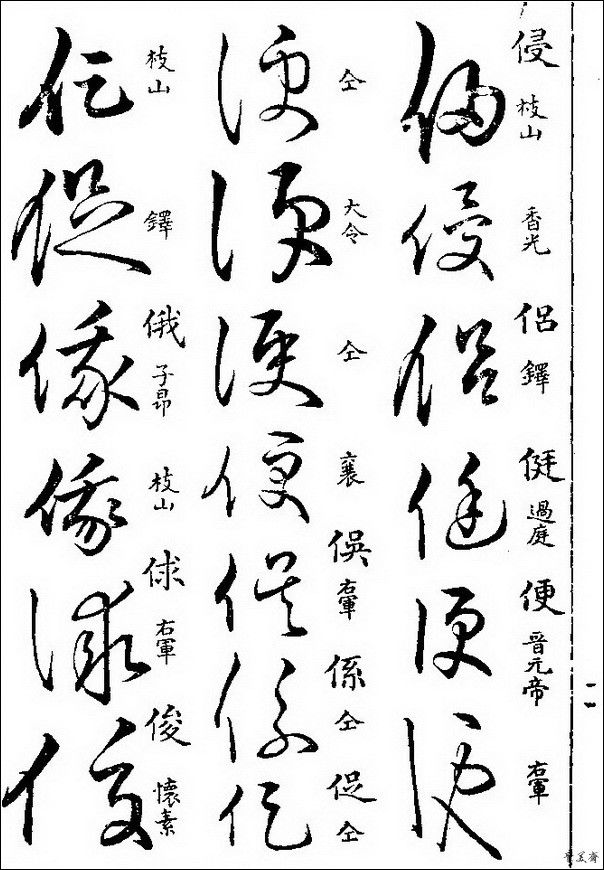 侵 枝山
香光
侣 鐸
侹 過庭
便 晉元帝
右軍
仝
大令
仝
襄
俁 右軍
係 仝
促 仝
枝山
鐸
俄 子昂
枝山
俅 右軍
俊 懷素
二